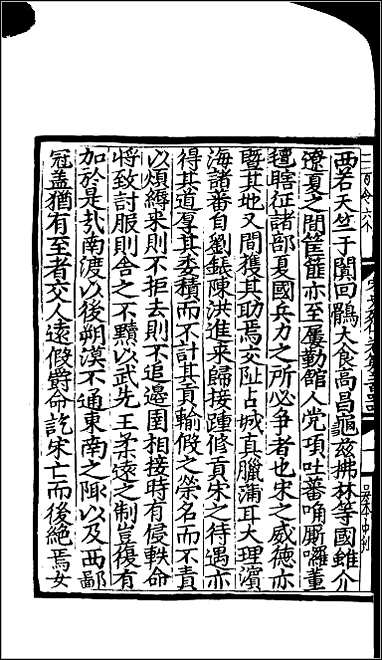 西若天竺于闐回鶻大食高昌龜茲拂林等國雖介
遼夏之間筐篚亦至屢勤館人党項吐蕃唃厮囉董
氊瞎征諸部夏國兵力之所必爭者也宋之威德亦
暨其地又間獲其助焉交阯占城真臘蒲耳大理濱
海諸番自劉鋹陳洪進來歸接踵修貢宋之待遇亦
得其道厚其委積而不計其貢輸假之榮名而不責
以煩縟来則不拒去則不追邊圉相接時有侵軼命
將致討服則舎之不黷以武先王柔遠之制豈復有
加於是㢤南渡以後朔漠不通東南之陬以及西鄙
冠盖猶有至者交人遠假爵命訖宋亡而後絶焉女